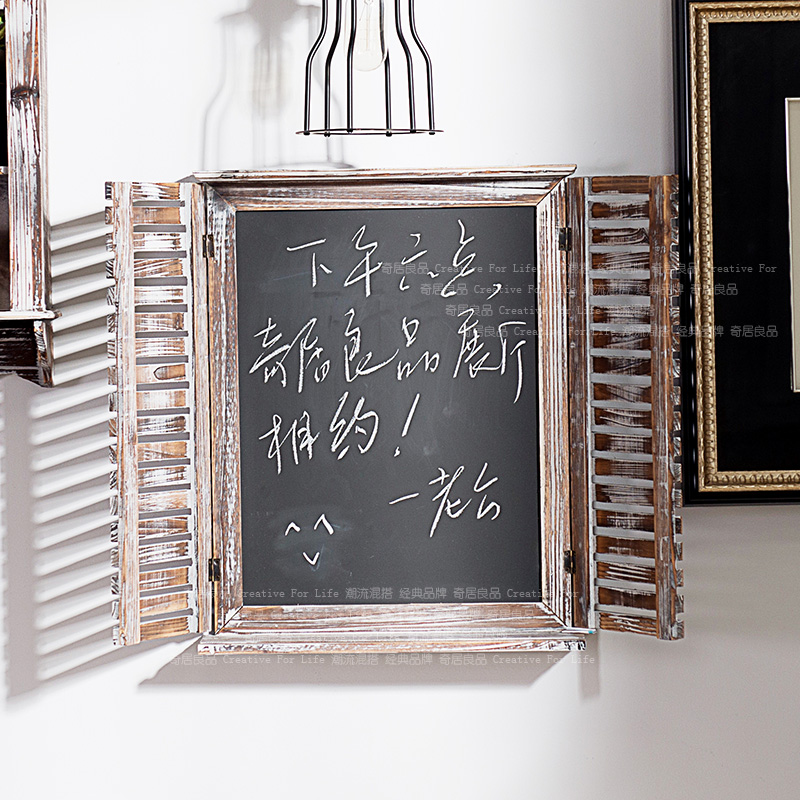 下午六点,
奇居良品展厅
相约!
—老台
奇居良品 Creative For Life 潮流混搭 经典品牌 奇居良品 Creative For
奇居良品 Creative For Life 潮流混搭 经典品牌 奇居良品
Creative For Life 潮流混搭
奇居良品 Creative For Life 潮流混搭 经典品牌 奇居良品
Creative For Life 潮流混搭 经典品牌 奇居良品 Creative For Life
奇居良品 Creative For Life 潮流混搭 经典品牌 奇居良品 Creative For Life